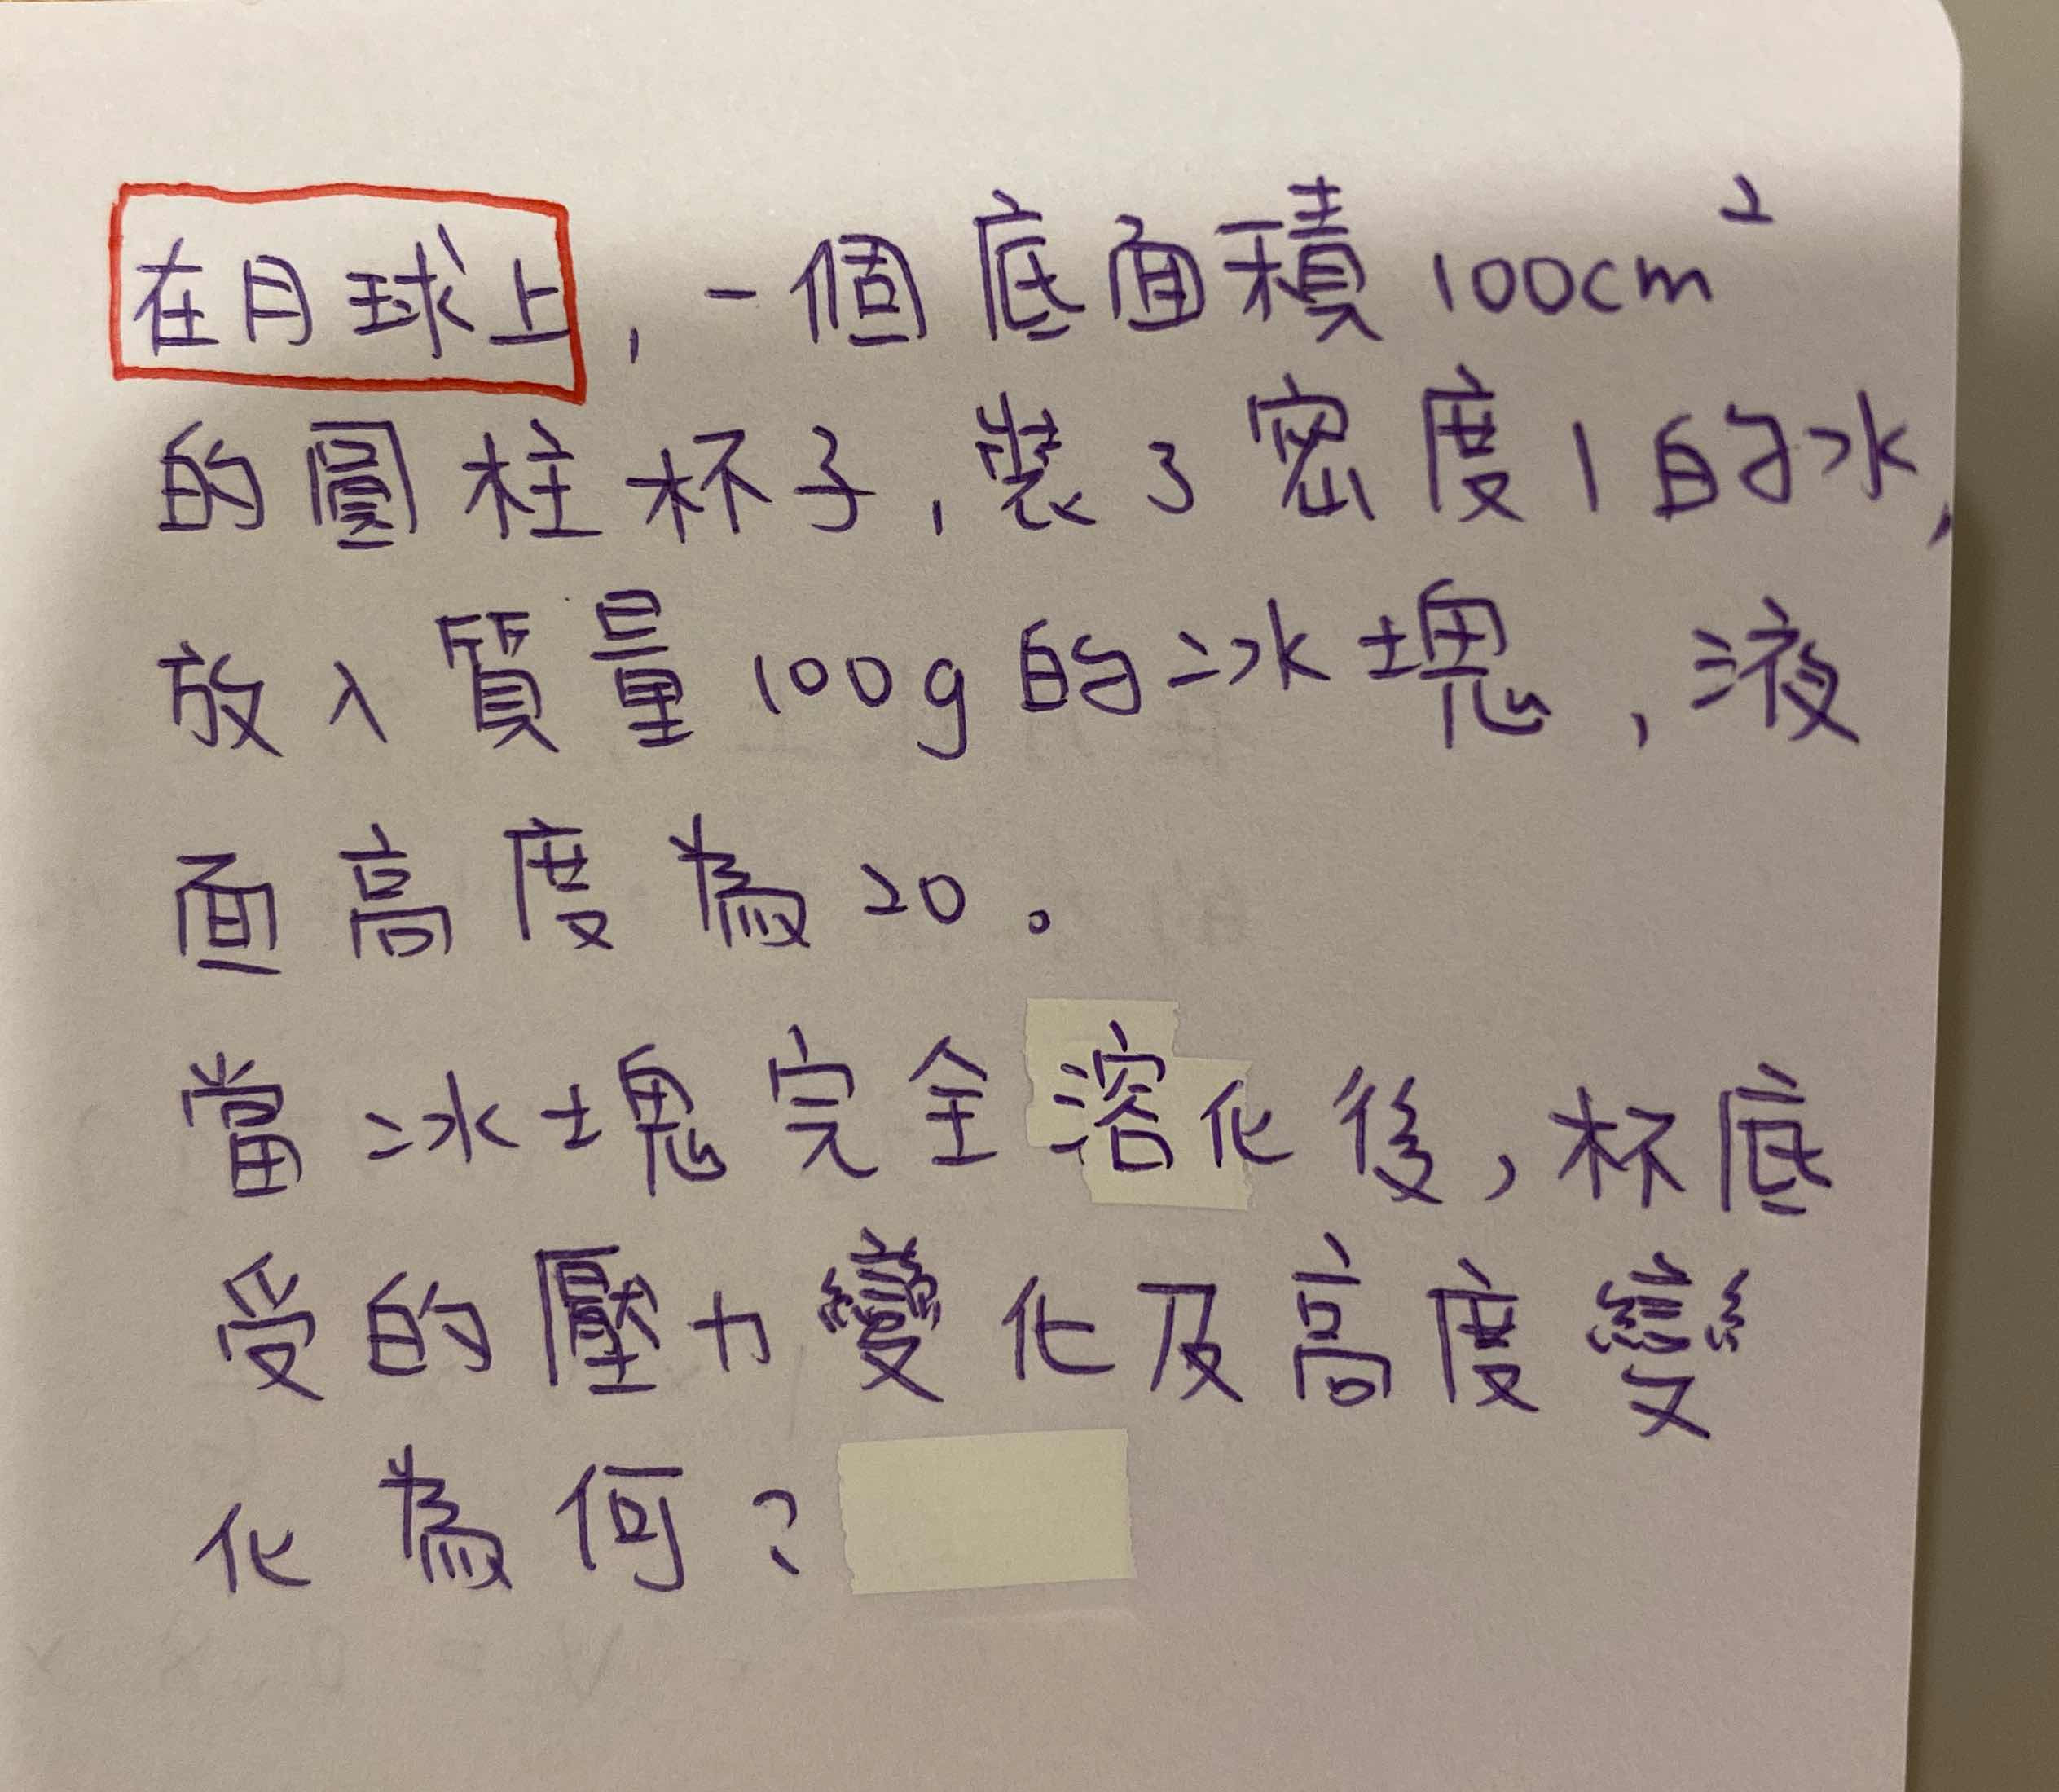 在月球上,一個底面積100cm²
的圓柱杯子,裝了密度1的水,
放入質量100g的冰塊,液
面高度為20。
當冰塊完全溶化後,杯底
受的壓力變化及高度變
化為何?